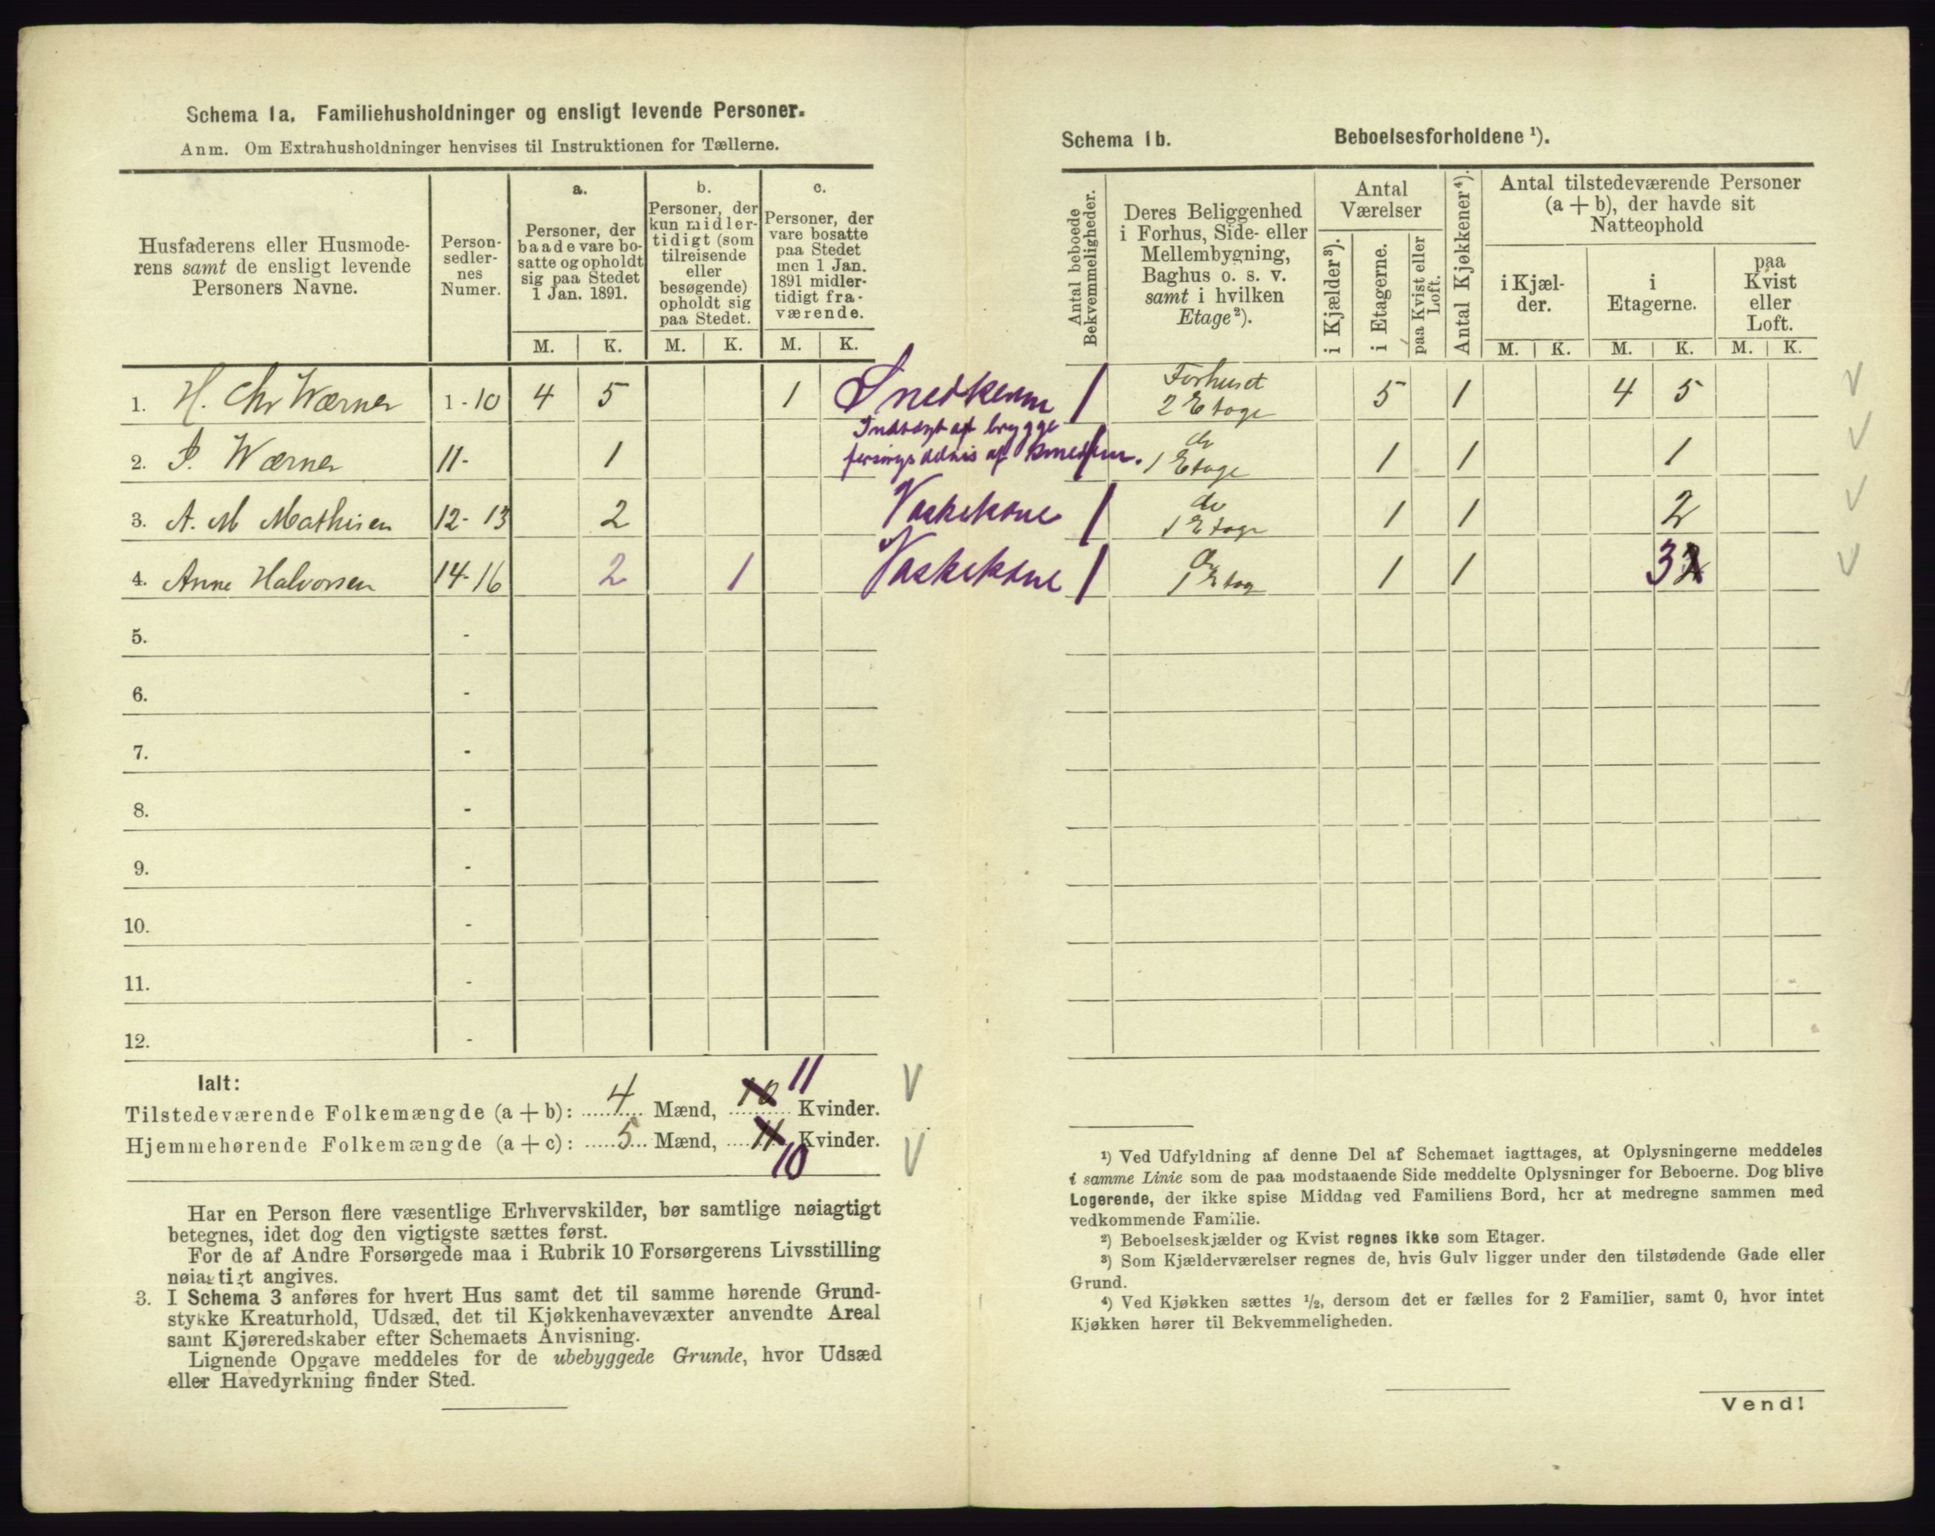 Schema 1a. Familiehusholdninger og ensligt levende Personer.
Anm. Om Extrahusholdninger henvises til Instruktionen for Tællerne.
Husfaderens eller Husmode-
rens samt de ensligt levende
Personers Navne.
Person-
sedler-
nes
Numer.
a.
Personer, der
baade vare bo-
satte og opholdt
sig paa Stedet
1 Jan. 1891.
b.
Personer, der
kun midler-
tidigt (som
tilreisende
eller
besøgende)
opholdt sig
paa Stedet.
c.
Personer, der
vare bosatte
paa Stedet
men 1 Jan.
1891 midler-
tidigt fra-
værende.
M. K. M. K. M. K.
1. H. Chr Wærner 1-10 4 5 1 Snedkerm
2. P. Wærner 11- 1 Indtægt af brygge
3. A. M Mathisen 12-13 2 Vaskekone
4. Anne Halvorsen 14-16 2 1 Vaskekone
5. -
6. -
7. -
8. -
9. -
10. -
11. -
12. -
Ialt:
11
Tilstedeværende Folkemængde (a + b): 4 Mænd, 10 Kvinder.
Hjemmehørende Folkemængde (a + c): 5 Mænd, 11 Kvinder.
10
Har en Person flere væsentlige Erhvervskilder, bør samtlige nøiagtigt
betegnes, idet dog den vigtigste sættes først.
For de af Andre Forsørgede maa i Rubrik 10 Forsørgerens Livsstilling
nøiagtigt angives.
3. I Schema 3 anføres for hvert Hus samt det til samme hørende Grund-
stykke Kreaturhold, Udsæd, det til Kjøkkenhavevæxter anvendte Areal
samt Kjøreredskaber efter Schemaets Anvisning.
Lignende Opgave meddeles for de ubebyggede Grunde, hvor Udsæd
eller Havedyrkning finder Sted.
Schema 1b. Beboelsesforholdene ¹).
Antal beboede
Bekvemmeligheder.
Deres Beliggenhed
i Forhus, Side- eller
Mellembygning,
Baghus o. s. v.
samt i hvilken
Etage²).
Antal
Værelser
i Kjælder³).
i Etagerne.
paa Kvist eller
Loft.
Antal Kjøkkener⁴).
Antal tilstedeværende Personer
(a + b), der havde sit
Natteophold
i Kjæl-
der.
i
Etagerne.
paa
Kvist
eller
Loft.
M. K. M. K. M. K.
1 Forhuset
2 Etage 5 1 4 5
1 do
1 Etage 1 1 1
1 do
1 Etage 1 1 2
1 do
1 Etag 1 1 3 2
¹) Ved Udfyldning af denne Del af Schemaet iagttages, at Oplysningerne meddeles
i samme Linie som de paa modstaaende Side meddelte Oplysninger for Beboerne. Dog blive
Logerende, der ikke spise Middag ved Familiens Bord, her at medregne sammen med
vedkommende Familie.
²) Beboelseskjælder og Kvist regnes ikke som Etager.
³) Som Kjælderværelser regnes de, hvis Gulv ligger under den tilstødende Gade eller
Grund.
⁴) Ved Kjøkken sættes ½, dersom det er fælles for 2 Familier, samt 0, hvor intet
Kjøkken hører til Bekvemmeligheden.
Vend!